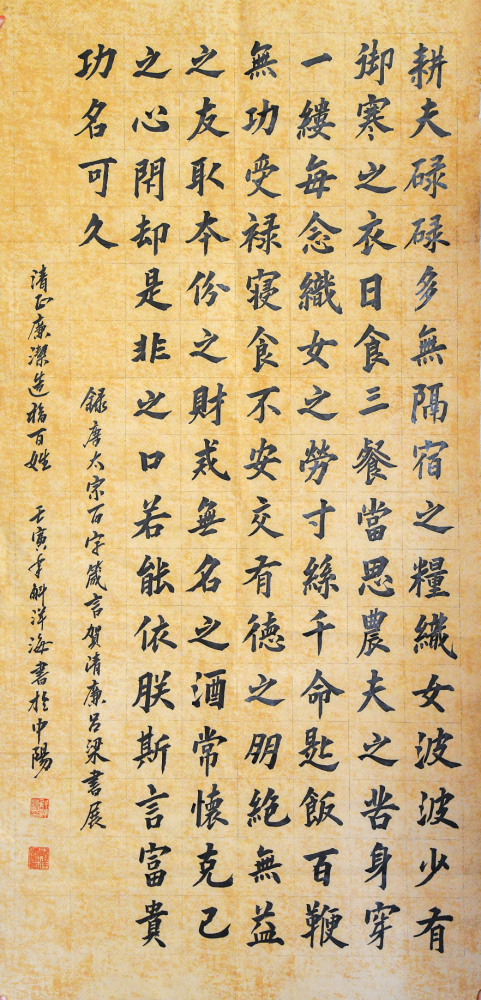 耕夫碌碌多無隔宿之糧織女波波少有
御寒之衣日食三餐當思農夫之苦身穿
一縷每念織女之勞寸絲千命匙飯百鞭
無功受禄寢食不安交有德之朋絕無益
之友取本份之財戒無名之酒常懷克己
之心閉却是非之口若能依朕斯言富貴
功名可久
錄唐太宗百字箴言賀清廉呂梁書展
清正廉潔造福百姓 壬寅年斛洋海書於中陽